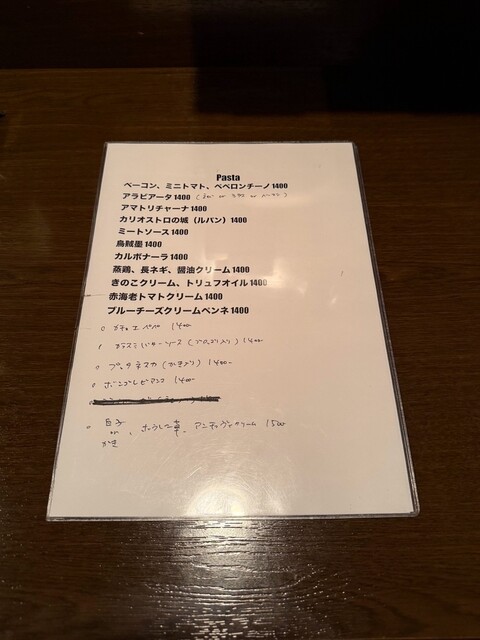 Pasta
ベーコン、ミニトマト、ペペロンチーノ 1400
アラビアータ 1400
アマトリチャーナ 1400
カリオストロの城（ルパン）1400
ミートソース 1400
烏賊墨 1400
カルボナーラ 1400
蒸鶏、長ネギ、醤油クリーム 1400
きのこクリーム、トリュフオイル 1400
赤海老トマトクリーム 1400
ブルーチーズクリームペンネ 1400
○ カチョエペペ 1400-
カラスミバターソース（ブロッコリ入り）1400-
○ プッタネスカ（かき入り）1400-
○ ボンゴレビアンコ 1400-
○ 白子 or かき、ほうれん草、アンチョヴィクリーム 1500